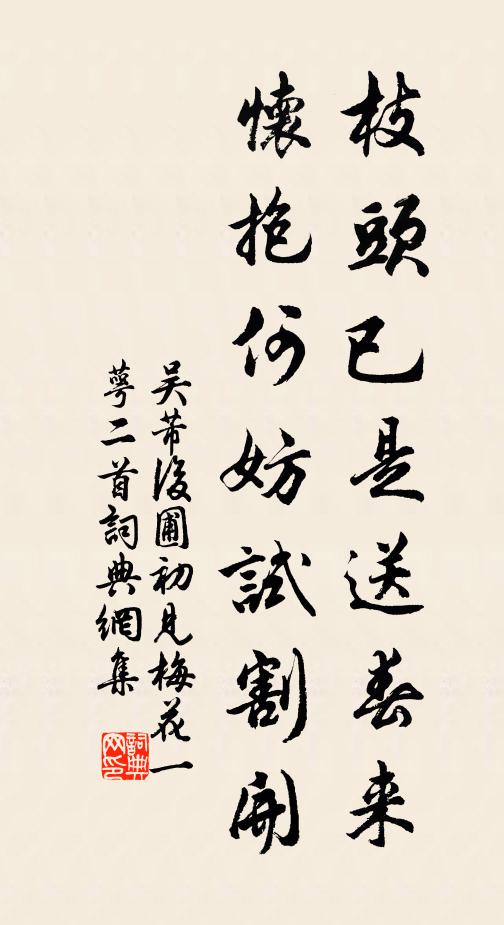 枝頭已是送春來
懷抱何妨試割開
吴芾後圃初見梅花一
萼二首詞典網集
詞典
网印